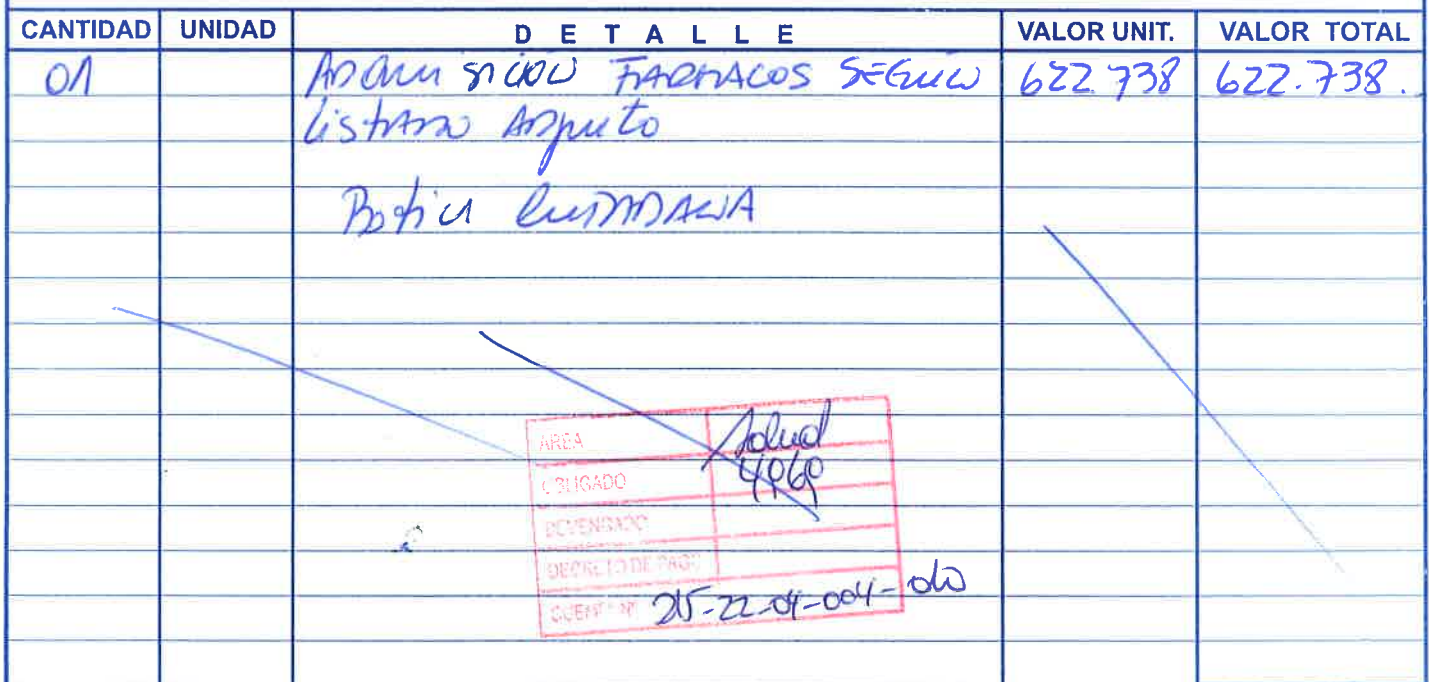 CANTIDAD UNIDAD DETALLE VALOR UNIT. VALOR TOTAL
01 Adquisición FARMACOS SEGÚN 622.738 622.738.
listado Adjunto
Botica Ciudadana
AREA Salud
OBLIGADO
DEVENGADO
DECRETO DE PAGO
CUENTA Nº 215-22-04-004-